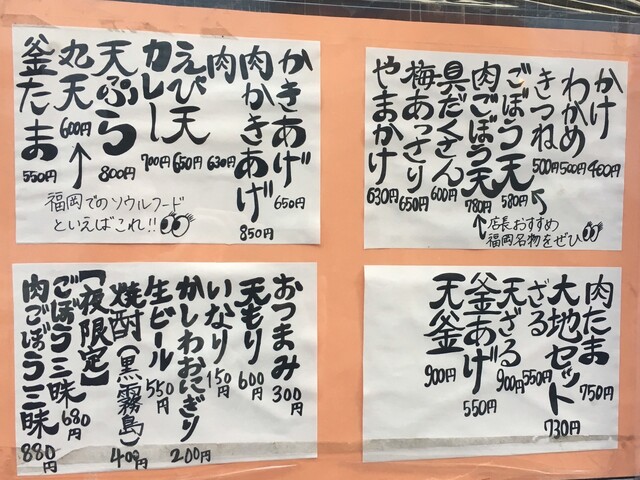 かけ 400円
わかめ 500円
きつね 500円
ごぼう天 580円
肉ごぼう天 780円
具だくさん 600円
梅あっさり 650円
やまかけ 630円
店長おすすめ
福岡名物をぜひ
かきあげ 650円
肉かきあげ 850円
肉 630円
えび天 650円
カレー 700円
天ぷら 800円
丸天 600円
釜たま 550円
福岡でのソウルフード
といえばこれ!!
肉たま 750円
大地セット 730円
ざる 550円
天ざる 900円
釜あげ 550円
天釜 900円
おつまみ 300円
天もり 600円
いなり 150円
かしわおにぎり 200円
生ビール 550円
焼酎(黒霧島) 400円
【夜限定】
ごぼう三昧 680円
肉ごぼう三昧 880円